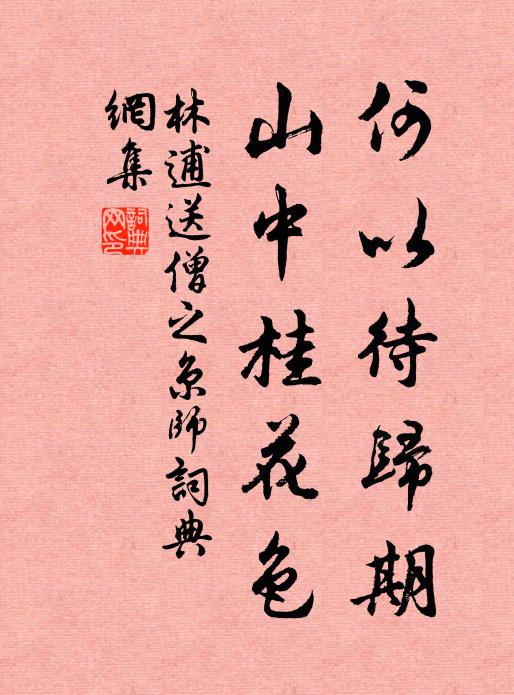 何以待歸期
山中桂花色
林逋送僧之京師詞典
網集
詞典
网印